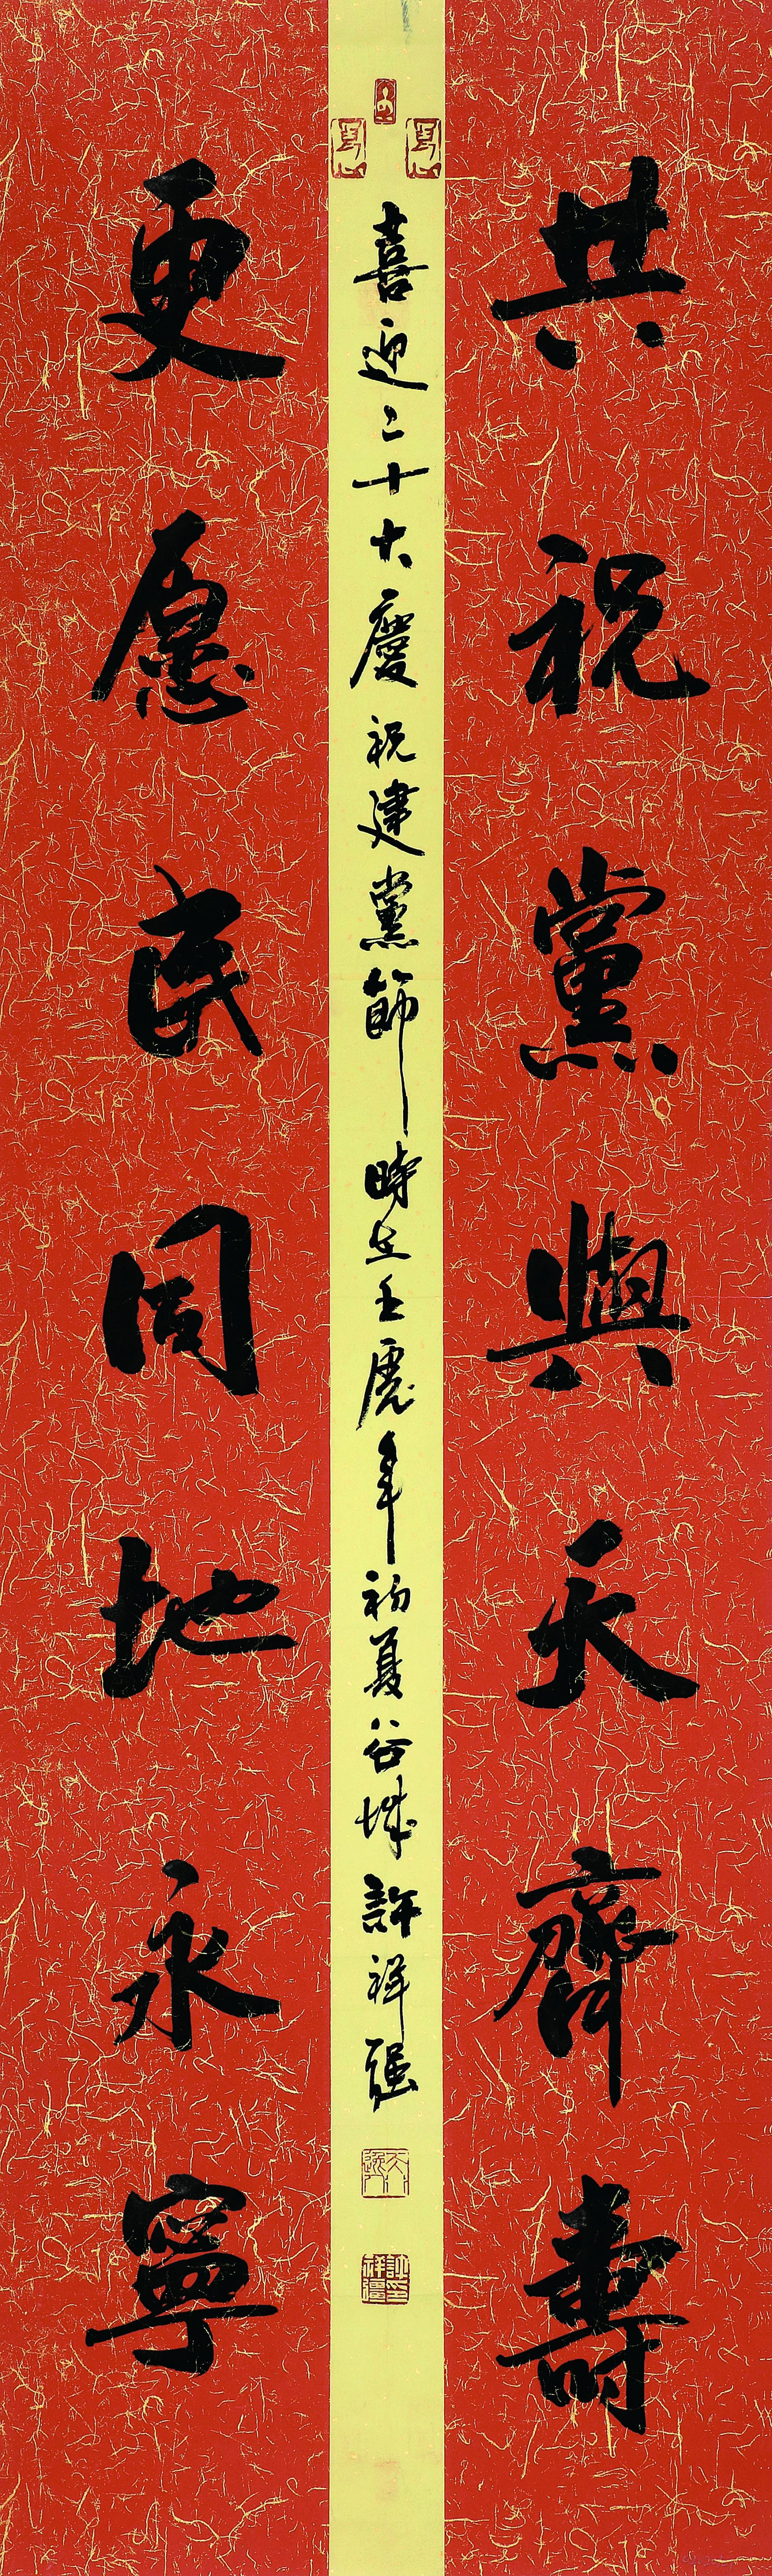 共祝黨與天齊壽
更愿民同地永寧
喜迎二十大慶祝建黨節時在壬虎年初夏谷城許祥强